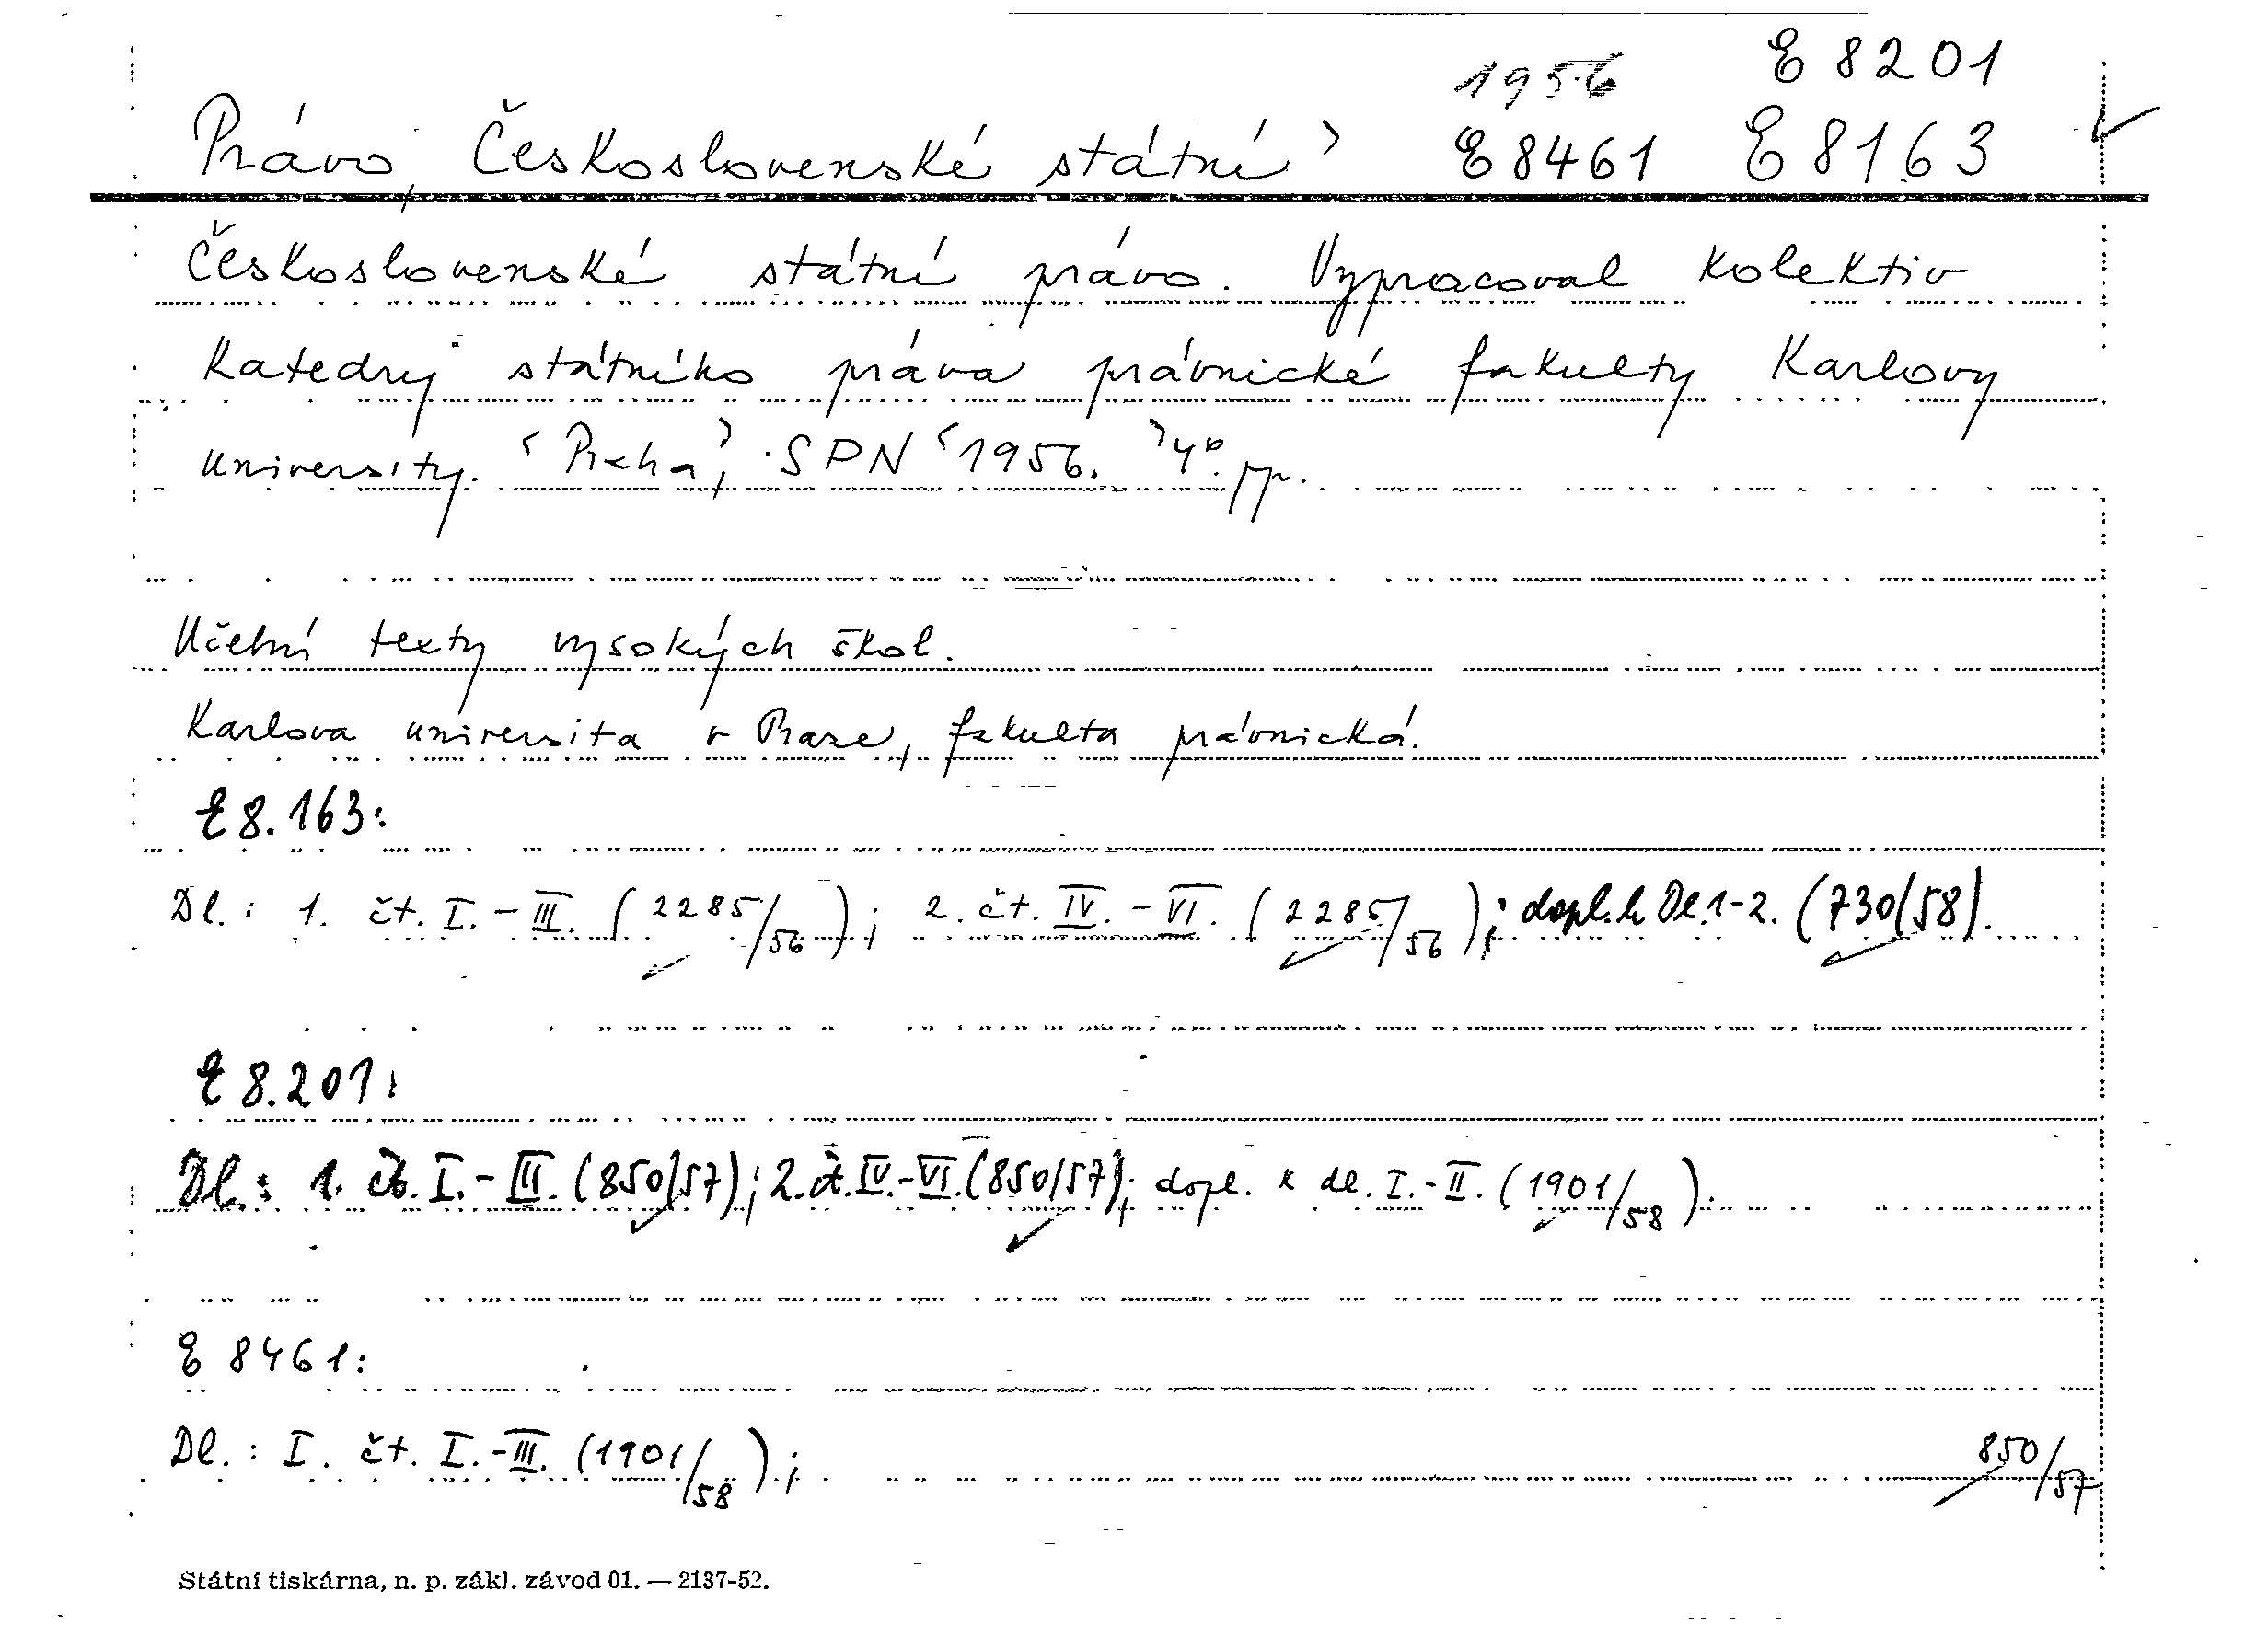 1956 E 8201
Právo, Československé státní > E 8461 E 8163
Československé státní právo. Vypracoval kolektiv
katedry státního práva právnické fakulty Karlovy
university. < Praha, > SPN < 1956. > 4° pp.
Učební texty vysokých škol.
Karlova universita v Praze, fakulta právnická.
E 8.163:
Dl.: 1. čt. I.-III. (2285/56); 2. čt. IV.-VI. (2285/56); dopl. k Dl. 1-2. (730/58).
E 8.201:
Dl.: 1. čt. I.-III. (850/57); 2. čt. IV.-VI. (850/57); dopl. k dl. I.-II. (1901/58).
E 8461:
Dl.: I. čt. I.-III. (1901/58);
850/57
Státní tiskárna, n. p. zákl. závod 01. — 2137-52.